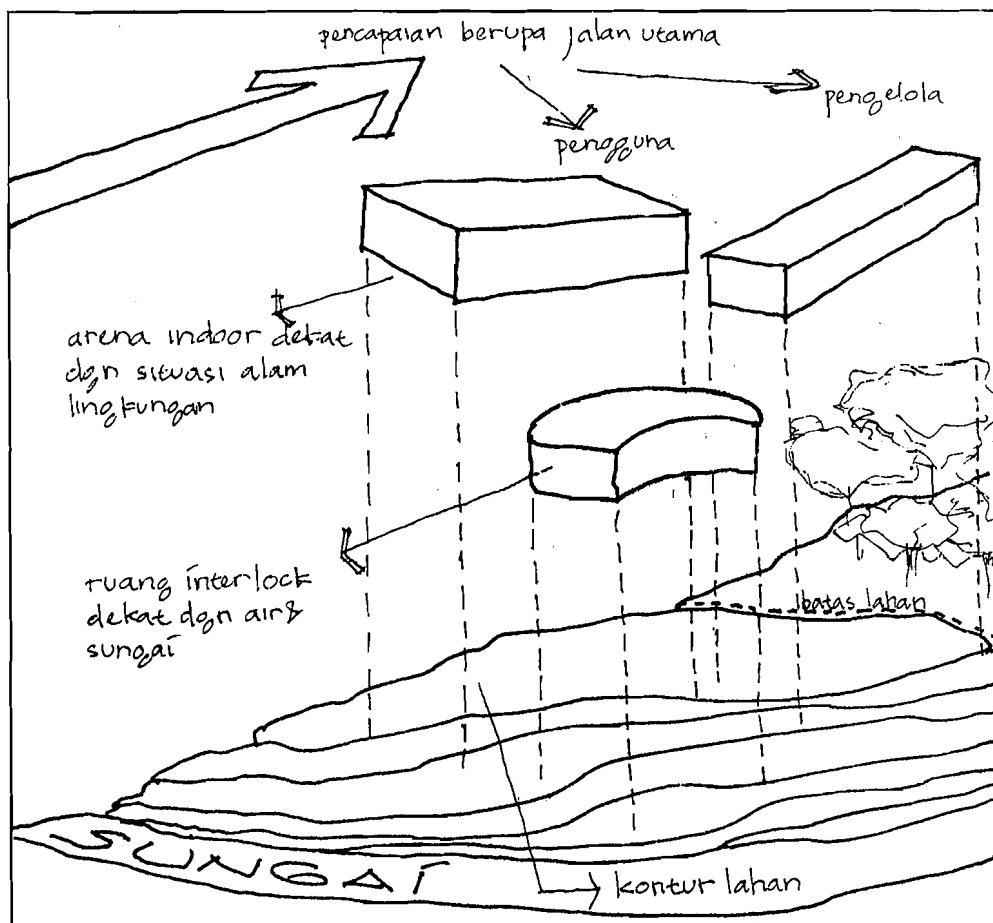 pencapaian berupa jalan utama
pengelola
pengguna
arena indoor dekat
dgn situasi alam
lingkungan
ruang interlock
dekat dgn air &
sungai
batas lahan
SUNGAI
kontur lahan